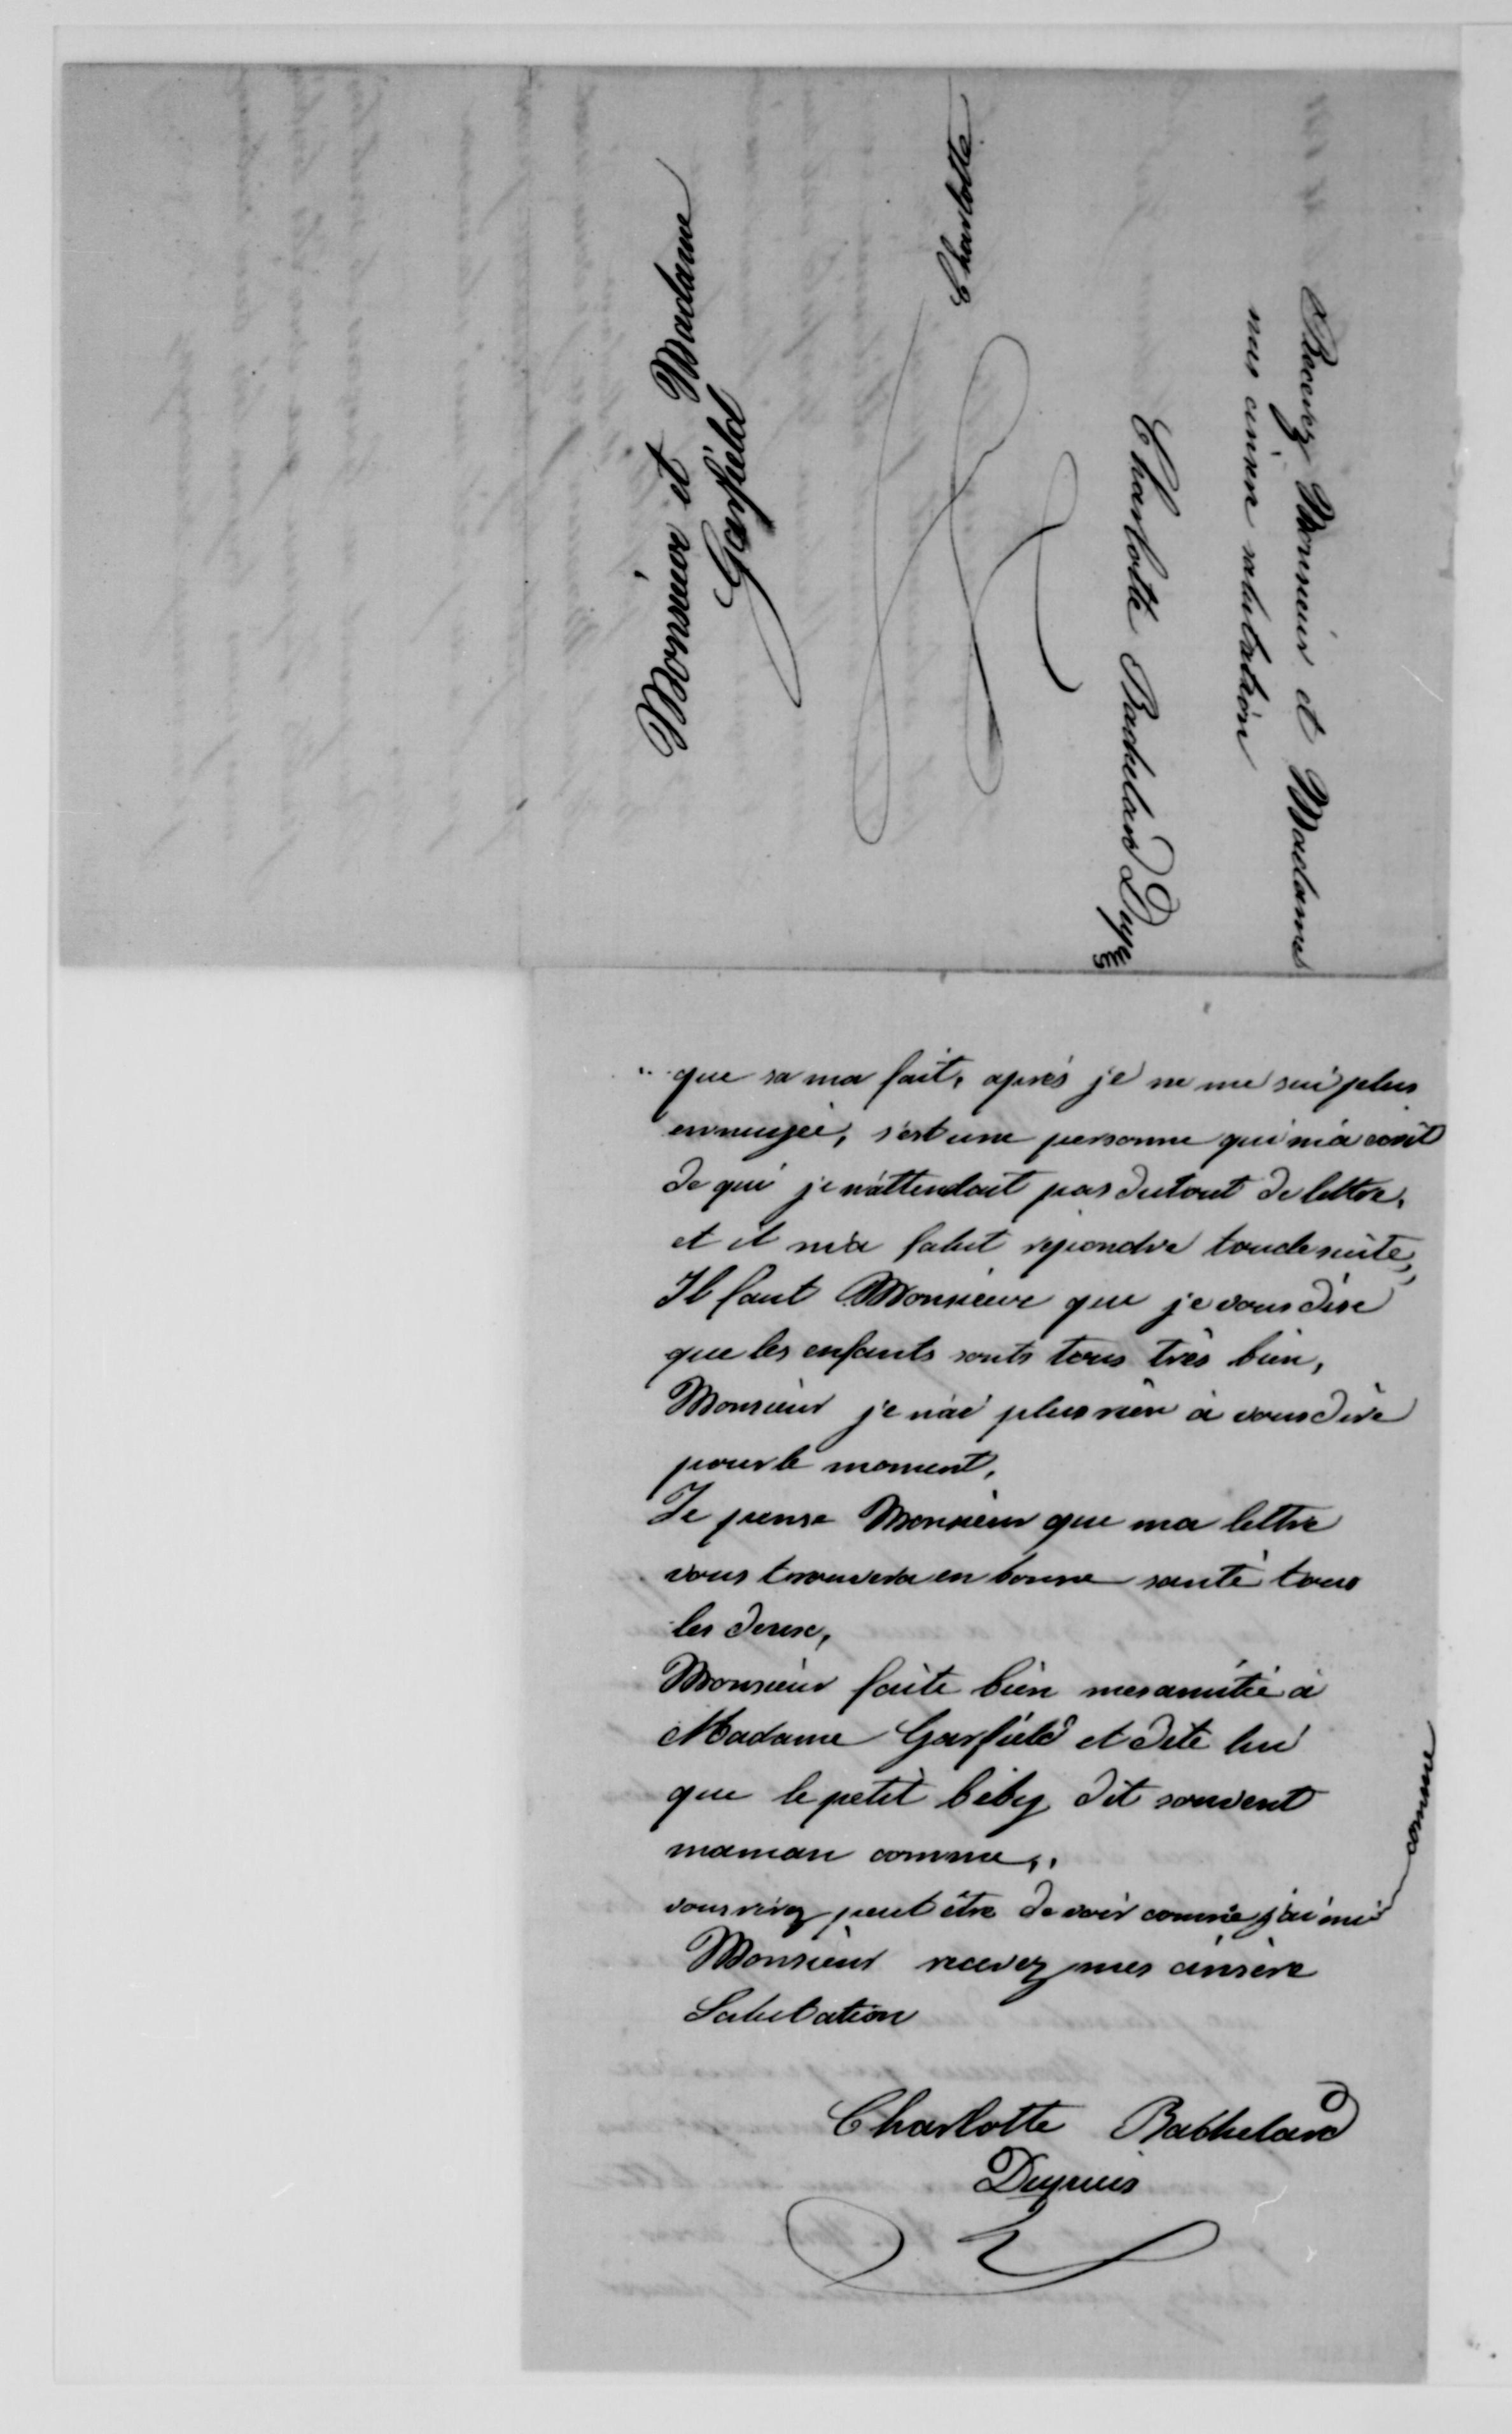 Monsieur et Madame
Garfield
Charlotte
Recevez Monsieur et Madame
mes cinsère salutation
Charlotte Bachelard Dupuis
que sa ma fait, après je ne me sui plus
ennuyée, s'est une personne qui m'a ecrit
de qui je n'attendait pas dutout de lettre,
et il m'a falut repondre toudesuite,
Il faut Monsieur que je vous dise
que les enfants sonts tous très bien,
Monsieur je n'ai plus rien à vous dire
pour le moment,
Je pense Monsieur que ma lettre
vous trouvera en bonne santé tous
les deux,
Monsieur faite bien mes amitié à
Madame Garfield et dite lui
que le petit béby dit souvent
maman comme,,
vous rirez peut être de voir comme j'ai mi
comme
Monsieur recevez mes cinsère
Salutation
Charlotte Bachelard
Dupuis